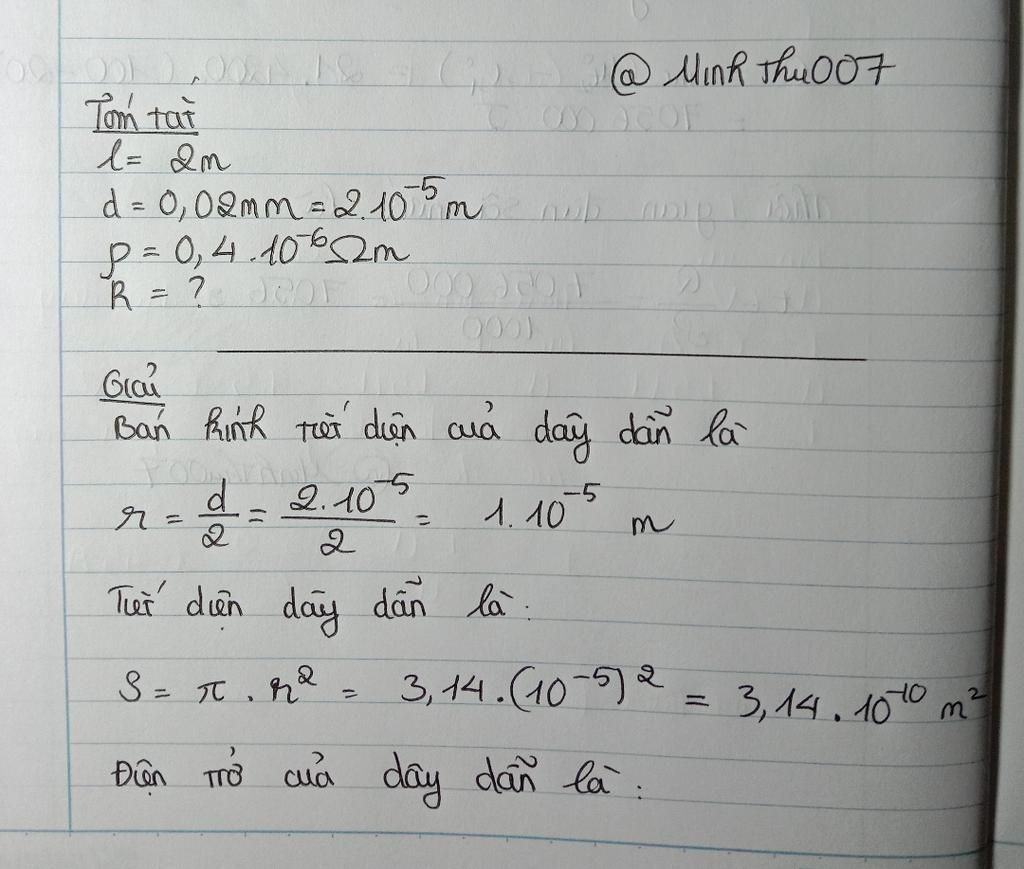 @ MinhThu007
Tóm tắt
l = 2m
d = 0,02mm = 2.10⁻⁵ m
ρ = 0,4 . 10⁻⁶ Ωm
R = ?
Giải
Bán kính tiết diện của dây dẫn là
r = d/2 = 2.10⁻⁵/2 = 1.10⁻⁵ m
Tiết diện dây dẫn là:
S = π . r² = 3,14 . (10⁻⁵)² = 3,14 . 10⁻¹⁰ m²
Điện trở của dây dẫn là: